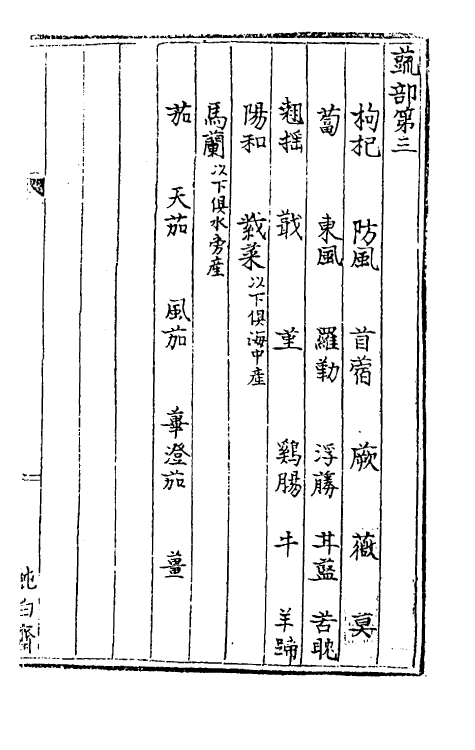 蔬部第三
枸杞 防風 苜蓿 蕨 薇 莫
蔔 東風 羅勒 浮勝 甘藍 苦耽
翹搖 蕺 堇 鷄腸 牛 羊蹄
陽和 蕺菜以下俱海中産
馬蘭以下俱水旁産
茄 天茄 風茄 蓽澄茄 薑
純白齋